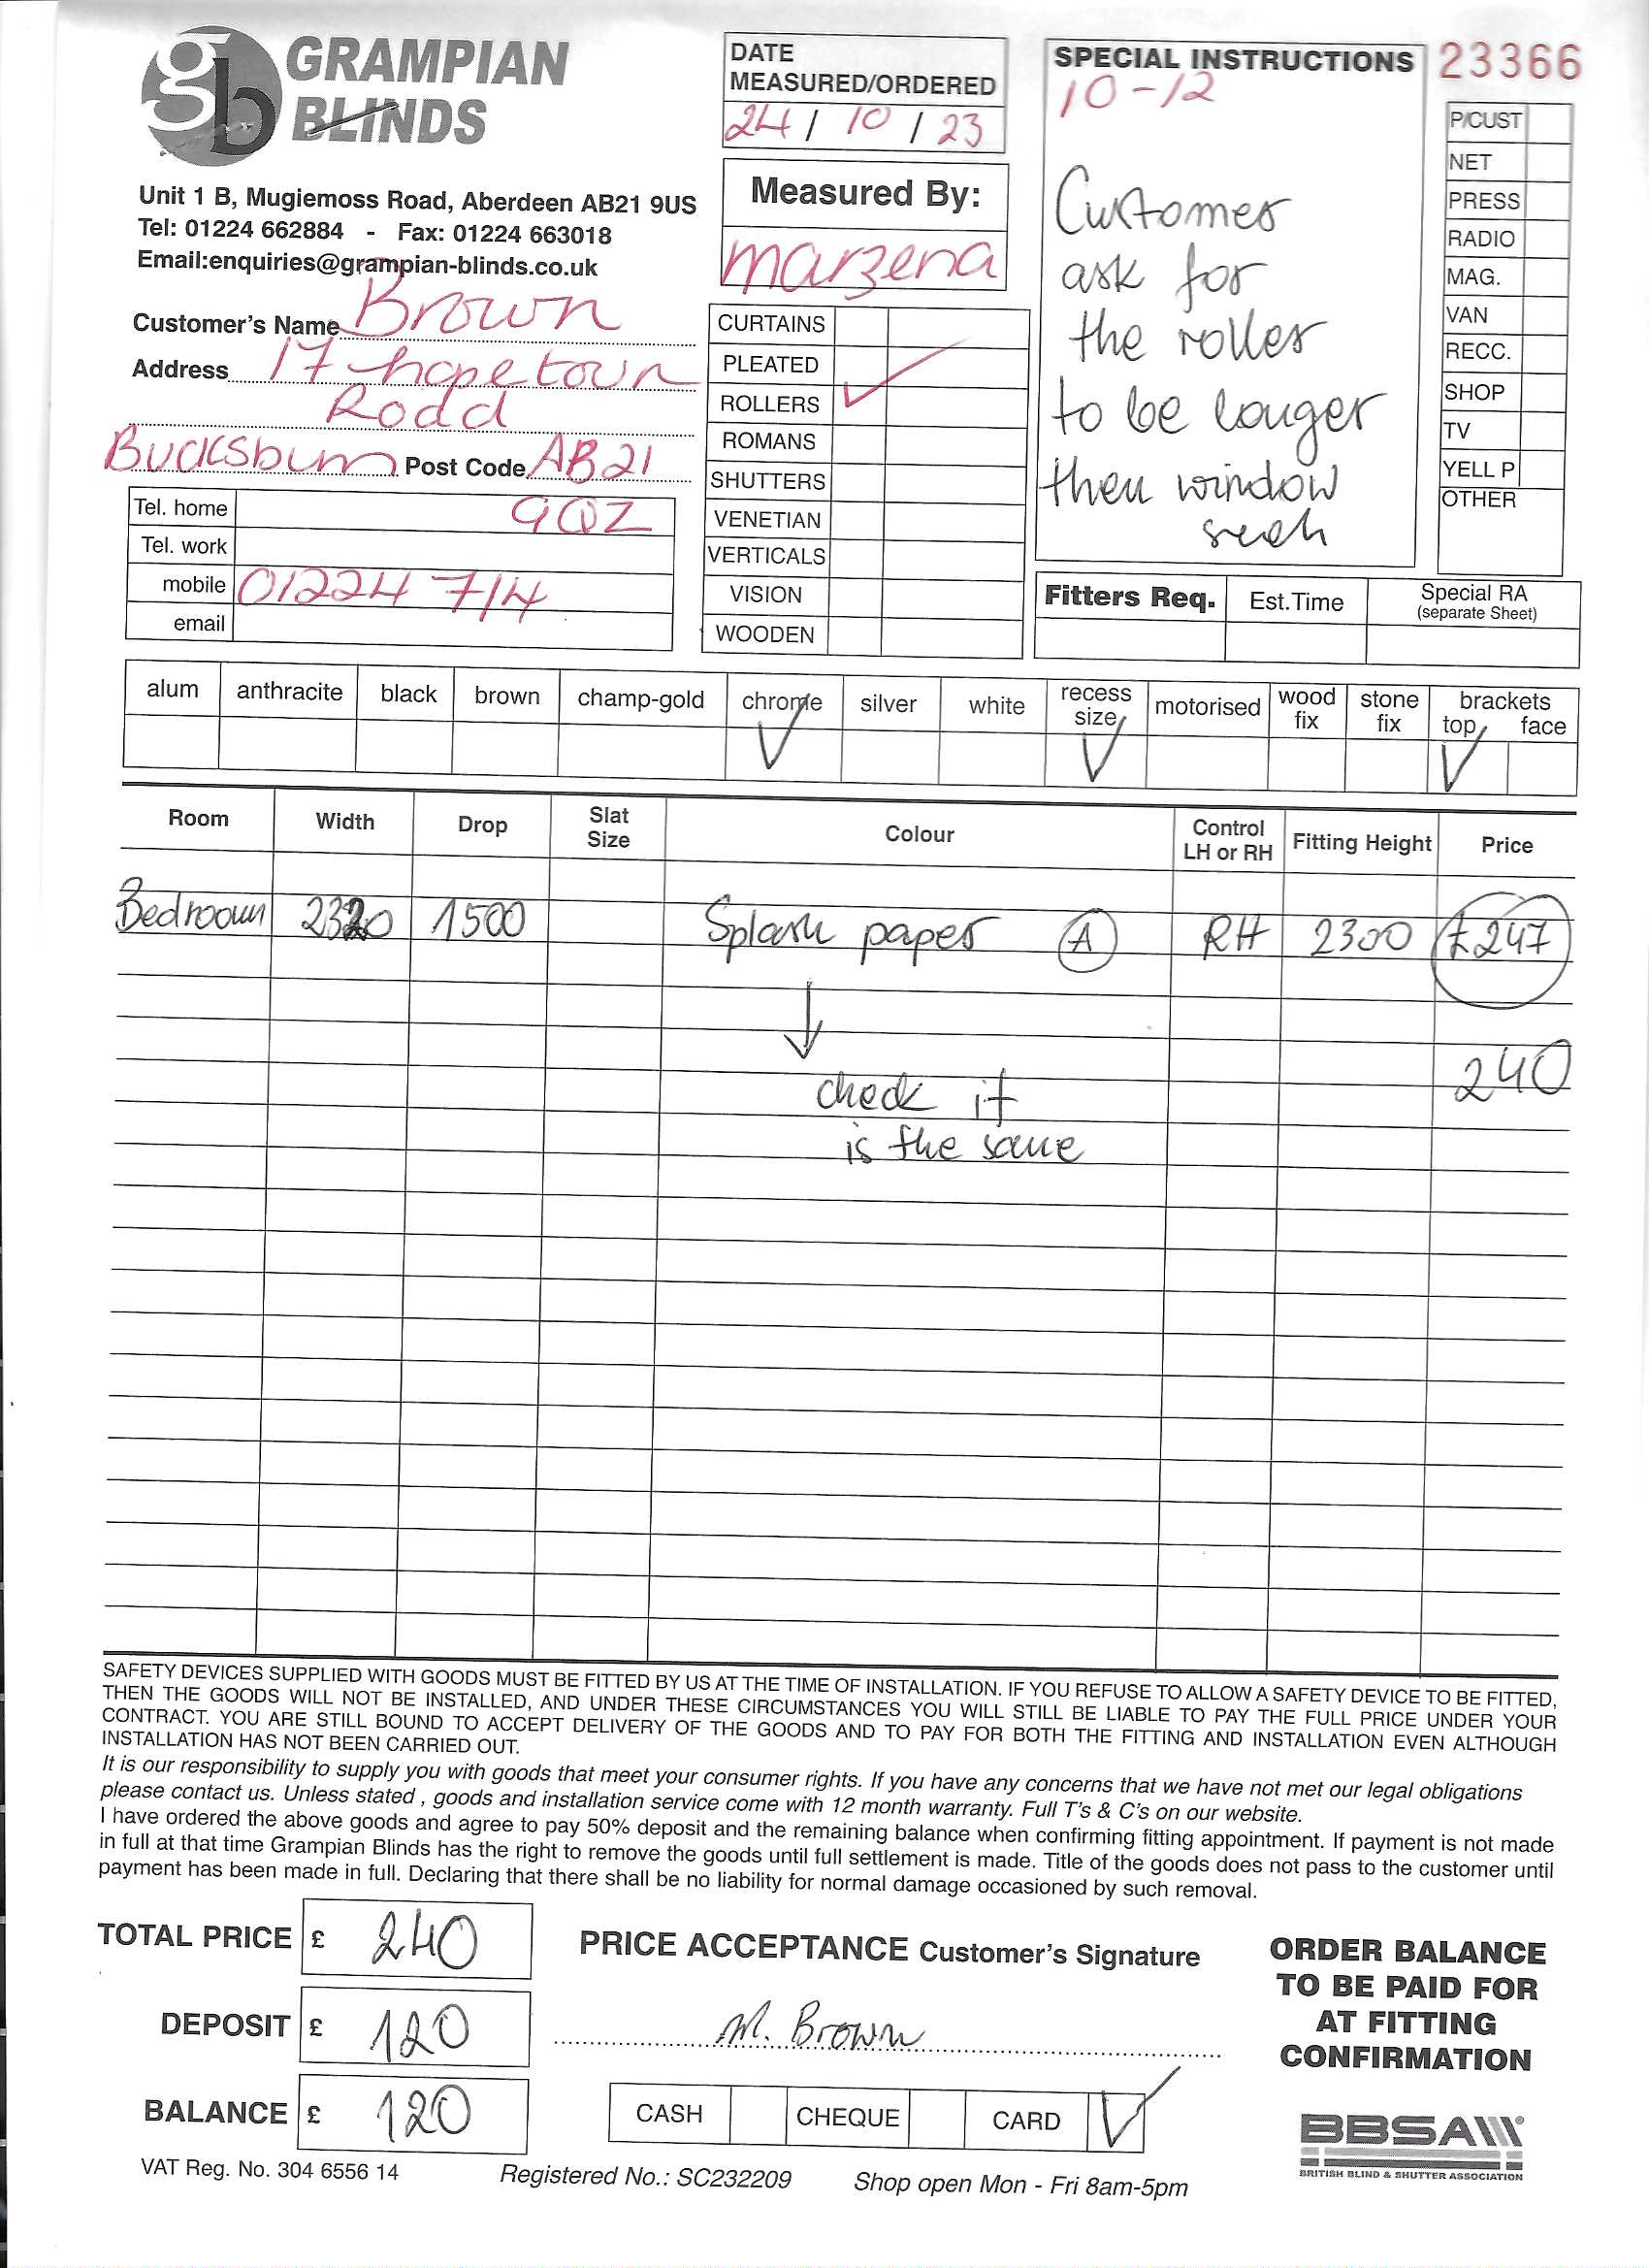 gb GRAMPIAN
BLINDS
Unit 1 B, Mugiemoss Road, Aberdeen AB21 9US
Tel: 01224 662884 - Fax: 01224 663018
Email:enquiries@grampian-blinds.co.uk
Customer's Name Brown
Address 17 hopetown
Road
Bucksburn Post Code AB21
9QZ
Tel. home
Tel. work
mobile 01224 714
email
DATE
MEASURED/ORDERED
24 / 10 / 23
Measured By:
Marzena
CURTAINS
PLEATED
ROLLERS ✓
ROMANS
SHUTTERS
VENETIAN
VERTICALS
VISION
WOODEN
SPECIAL INSTRUCTIONS
10-12
Customer
ask for
the roller
to be longer
then window
23366
P/CUST
NET
PRESS
RADIO
MAG.
VAN
RECC.
SHOP
TV
YELL P
OTHER
Fitters Req. Est.Time Special RA
(separate Sheet)
alum anthracite black brown champ-gold chrome silver white recess size motorised wood fix stone fix brackets top face
✓ ✓ ✓
Room Width Drop Slat Size Colour Control LH or RH Fitting Height Price
Bedroom 2320 1500 Splash paper A RH 2300 £247
↓
240
check if
is the same
SAFETY DEVICES SUPPLIED WITH GOODS MUST BE FITTED BY US AT THE TIME OF INSTALLATION. IF YOU REFUSE TO ALLOW A SAFETY DEVICE TO BE FITTED,
THEN THE GOODS WILL NOT BE INSTALLED, AND UNDER THESE CIRCUMSTANCES YOU WILL STILL BE LIABLE TO PAY THE FULL PRICE UNDER YOUR
CONTRACT. YOU ARE STILL BOUND TO ACCEPT DELIVERY OF THE GOODS AND TO PAY FOR BOTH THE FITTING AND INSTALLATION EVEN ALTHOUGH
INSTALLATION HAS NOT BEEN CARRIED OUT.
It is our responsibility to supply you with goods that meet your consumer rights. If you have any concerns that we have not met our legal obligations
please contact us. Unless stated , goods and installation service come with 12 month warranty. Full T's & C's on our website.
I have ordered the above goods and agree to pay 50% deposit and the remaining balance when confirming fitting appointment. If payment is not made
in full at that time Grampian Blinds has the right to remove the goods until full settlement is made. Title of the goods does not pass to the customer until
payment has been made in full. Declaring that there shall be no liability for normal damage occasioned by such removal.
TOTAL PRICE £ 240
DEPOSIT £ 120
BALANCE £ 120
PRICE ACCEPTANCE Customer's Signature
M. Brown
CASH CHEQUE CARD ✓
ORDER BALANCE
TO BE PAID FOR
AT FITTING
CONFIRMATION
BBSA
BRITISH BLIND & SHUTTER ASSOCIATION
VAT Reg. No. 304 6556 14 Registered No.: SC232209 Shop open Mon - Fri 8am-5pm